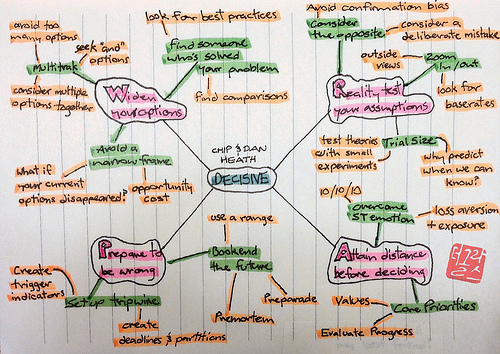 CHIP & DAN
HEATH
DECISIVE
Widen
your options
Multitrack
avoid too
many options
seek "and"
options
consider multiple
options together
Find someone
who's solved
your problem
look for best practices
find comparisons
Avoid a
narrow frame
What if
your current
options disappeared?
opportunity
cost
Reality-test
your assumptions
Consider
the opposite
Avoid confirmation bias
consider a
deliberate mistake
Zoom
In/out
outside
views
look for
baserates
Trial size
test theories
with small
experiments
why predict
when we can
know?
Attain distance
before deciding
overcome
ST emotion
10/10/10
loss aversion
+ exposure
Core Priorities
Values
Evaluate Progress
Prepare to
be wrong
Bookend
the future
use a range
Premortem
Preparade
Setup tripwire
Create
trigger
indicators
create
deadlines & partitions